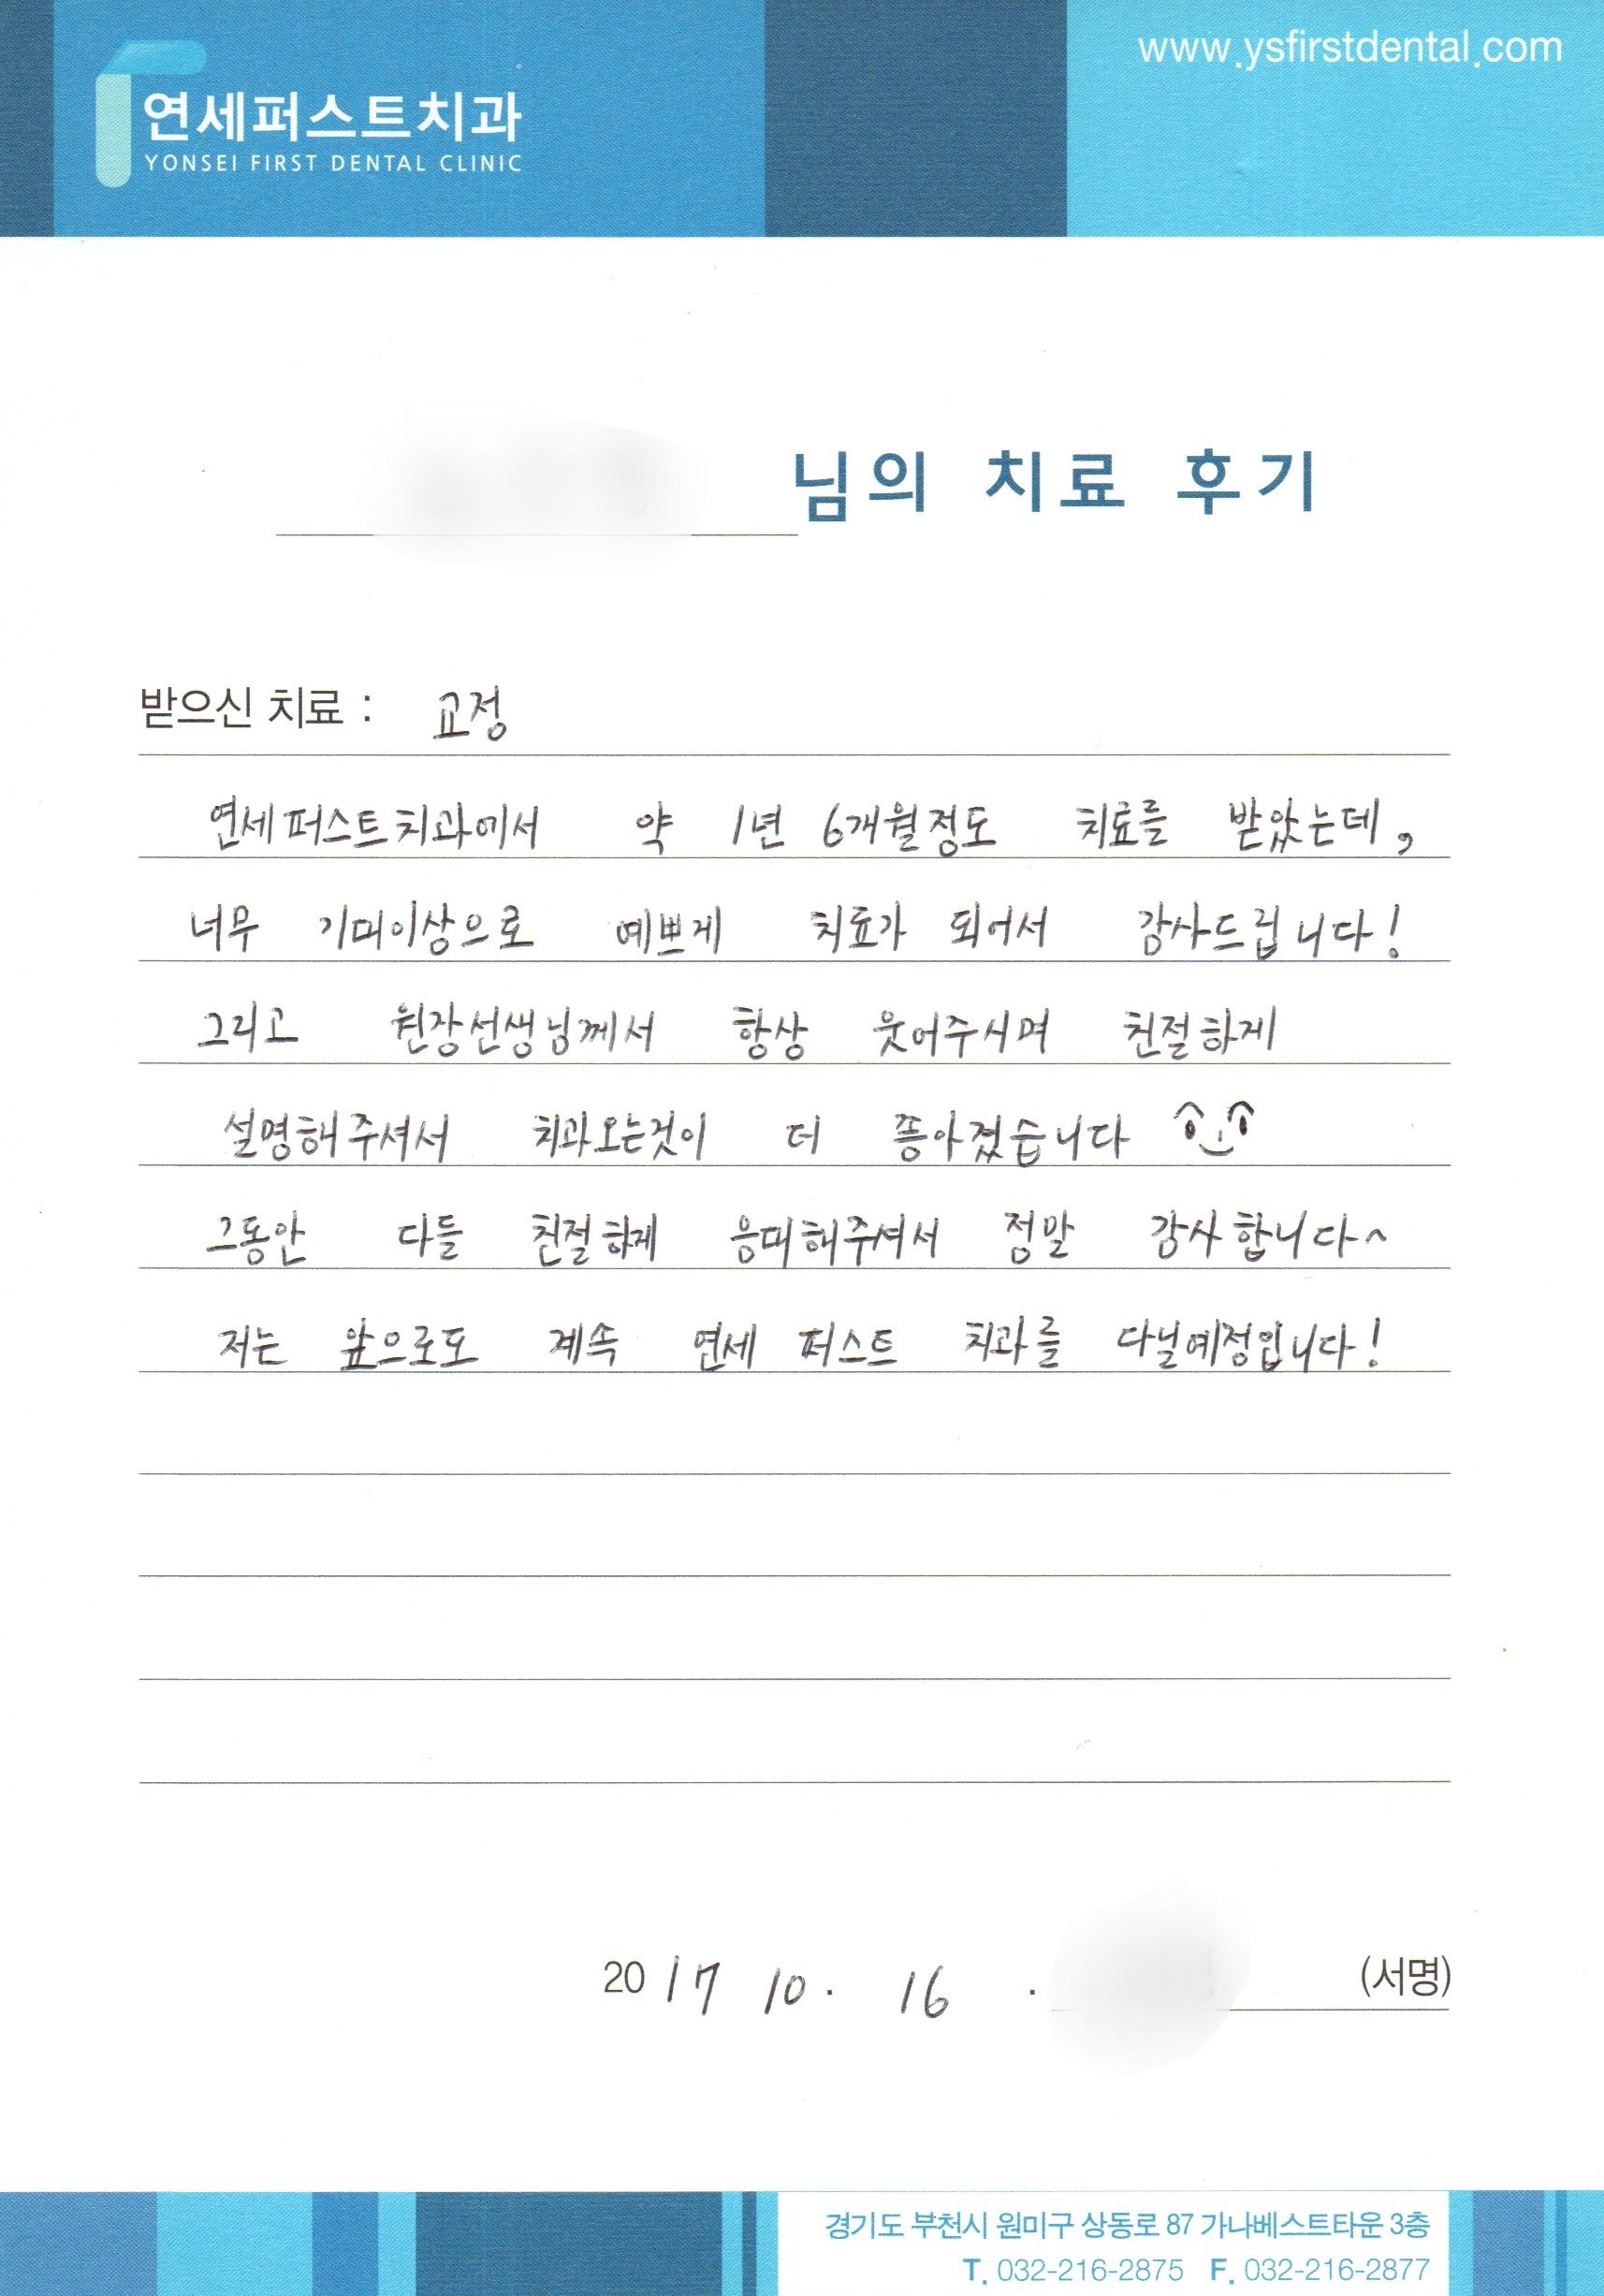 www.ysfirstdental.com
연세퍼스트치과
YONSEI FIRST DENTAL CLINIC
님의 치료 후기
받으신 치료 : 교정
연세퍼스트치과에서 약 1년 6개월정도 치료를 받았는데,
너무 기대이상으로 예쁘게 치료가 되어서 감사드립니다!
그리고 원장선생님께서 항상 웃어주시며 친절하게
설명해주셔서 치과오는것이 더 좋아졌습니다
그동안 다들 친절하게 응대해주셔서 정말 감사합니다~
저는 앞으로도 계속 연세 퍼스트 치과를 다닐예정입니다!
2017 10. 16 . (서명)
경기도 부천시 원미구 상동로 87 가나베스트타운 3층
T. 032-216-2875 F. 032-216-2877